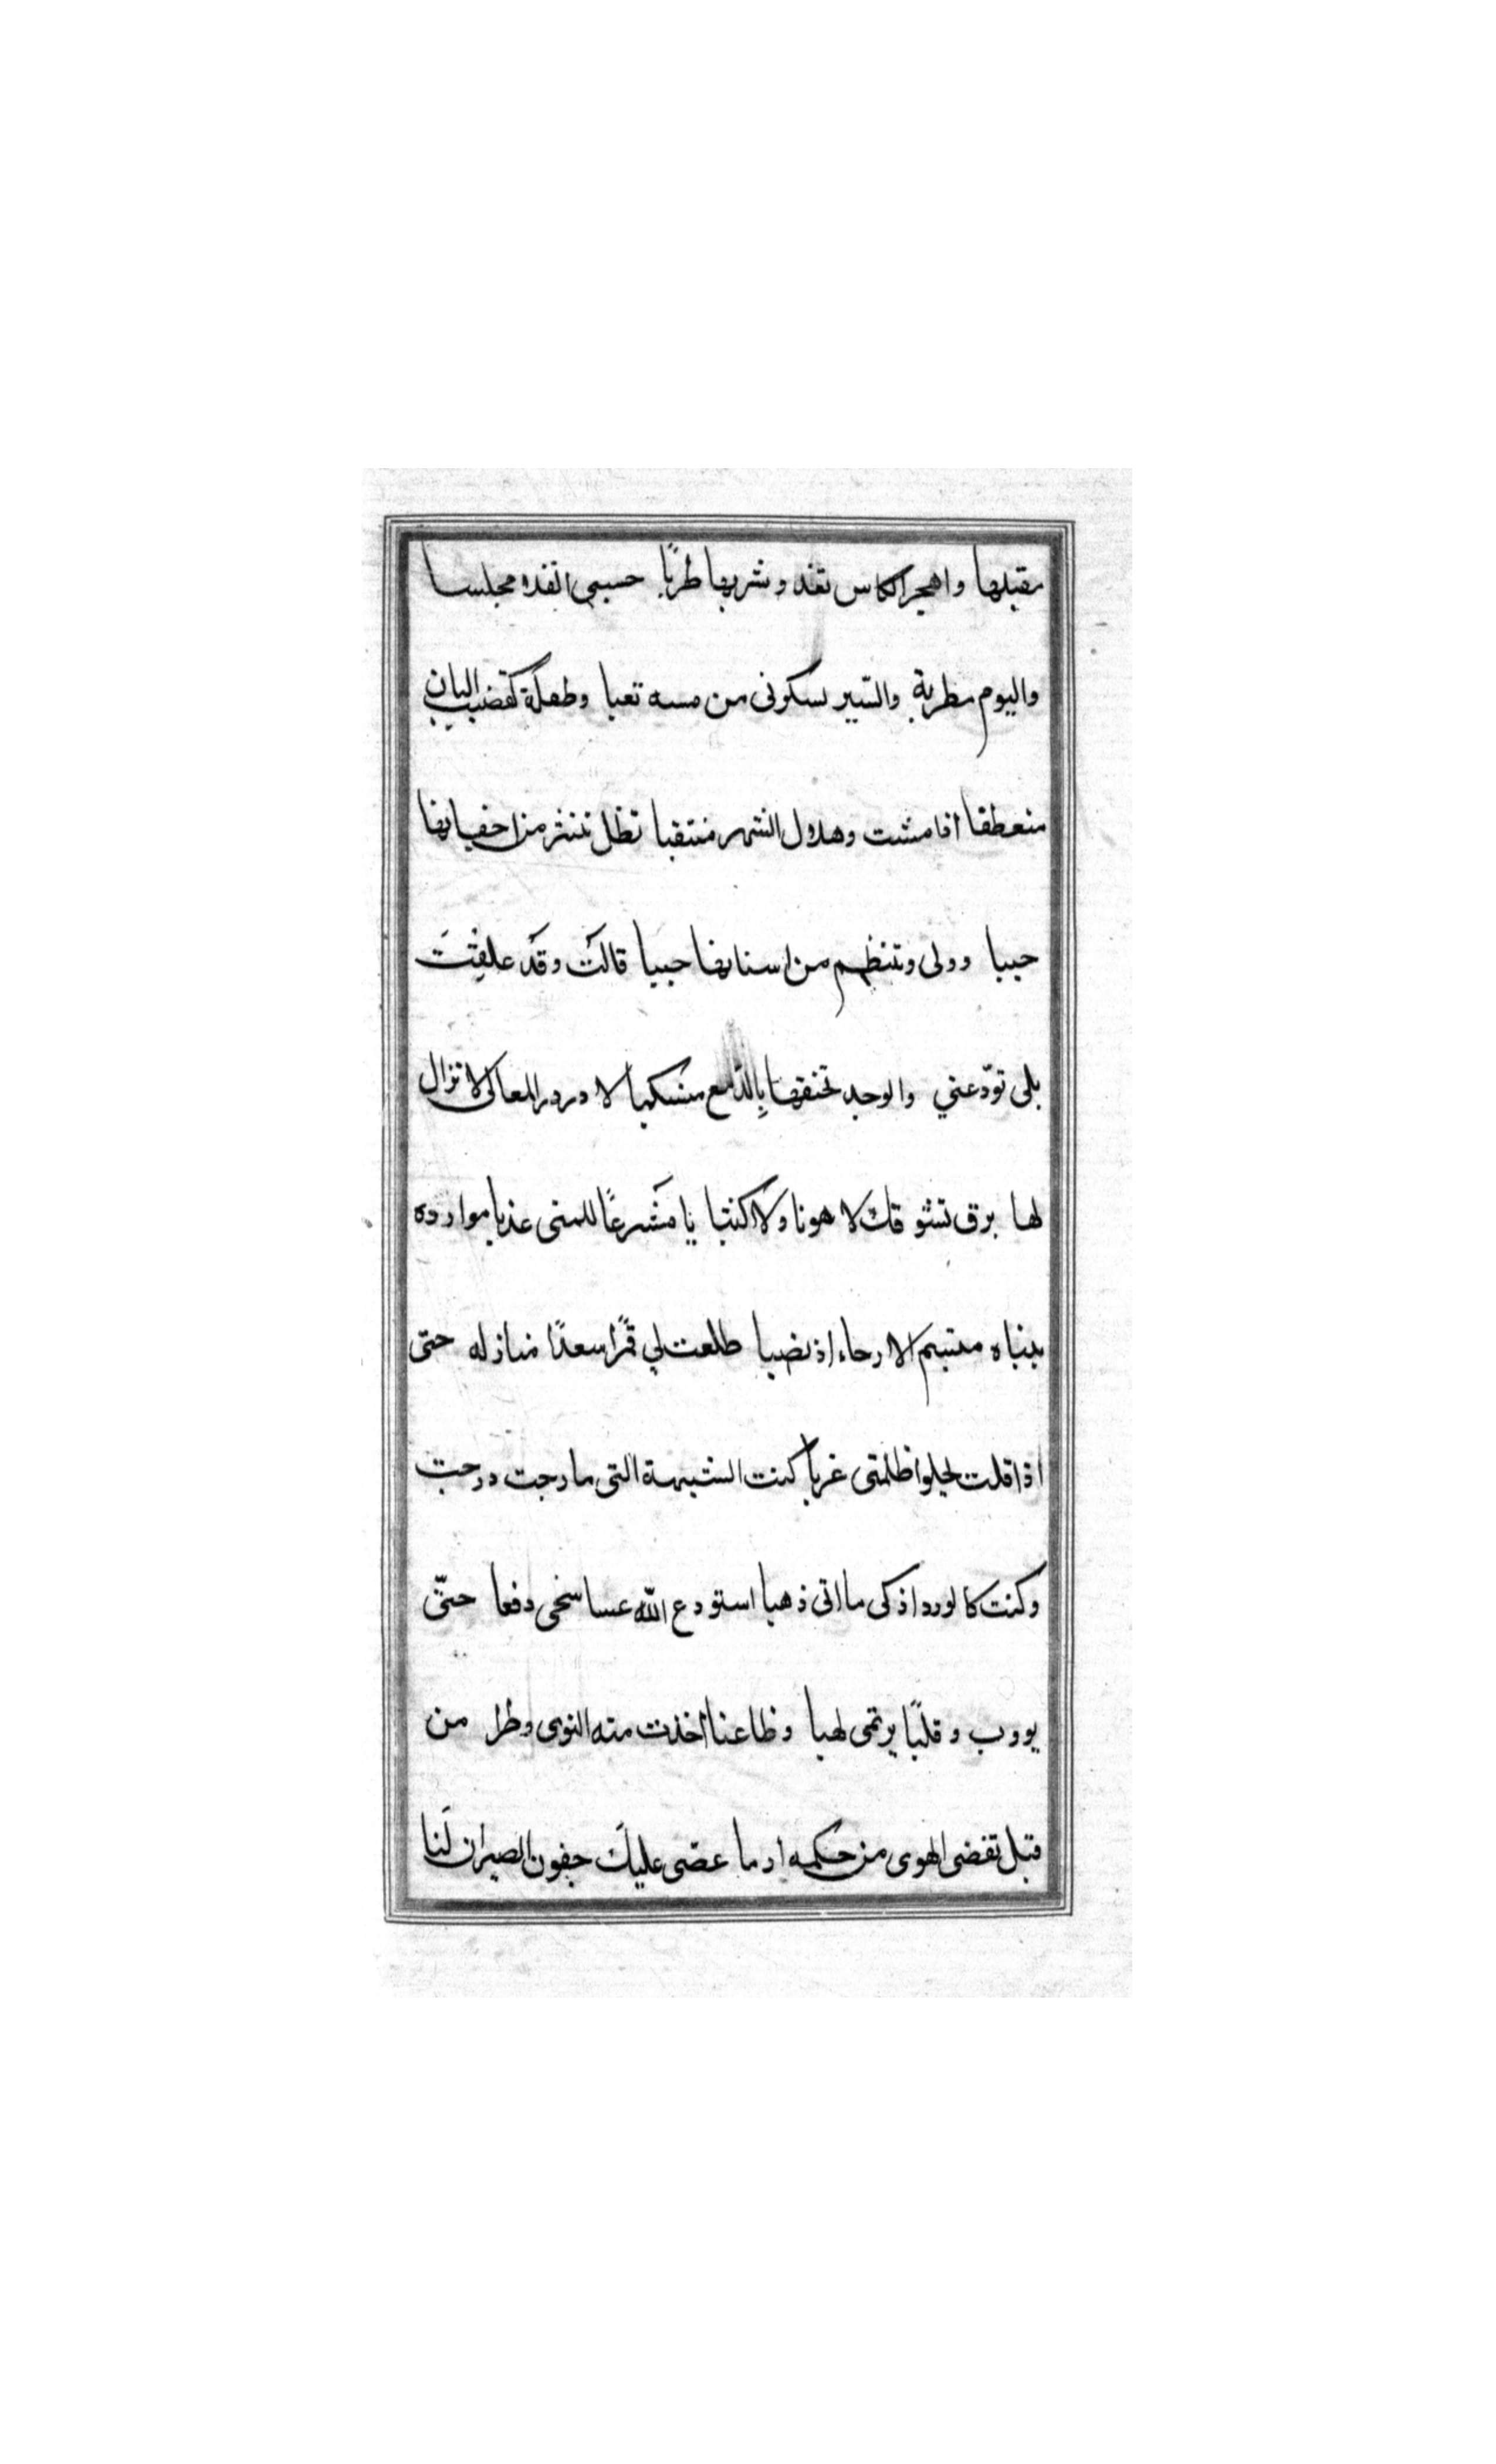 مقبلها واهجر الكاس تغد و شربها طربًا حسبى انفده مجلسا
واليوم مطربة والسّير يسكونى من مسه تعبا وطفلة كقضيب البان
منعطفا اذا مشت وهلال الشهر منتقبا تظل تنثر من اجفانها
حببا وولى وتنظم من اسنانها حببا قالت وقد علقت
بلى تودّعني والوجد تخنقها بِالدّمع منسكبا لا در در المعالى لا تزال
لها برق تشوقك لا هونا ولا كثبا يا مَشرعًا للمنى عذبا موارده
بيناه مبتسم الارجاء اذ نضبا طلعت لي قمرًا سعدًا منازله حتى
اذا قلت يجلوا ظلمتى غربا كنت الشبيبة التى ما دجت درجت
وكنت كالورد اذكى ما اتى ذهبا استودع الله عسا سخى دفعا حتّى
يووب وقلبًا يرتمى لهبا وظاعنا اخذت منه النوى وطرا من
قبل تقضى الهوى من حكمه ارما عضى عليك جفون الصبر ان لنا